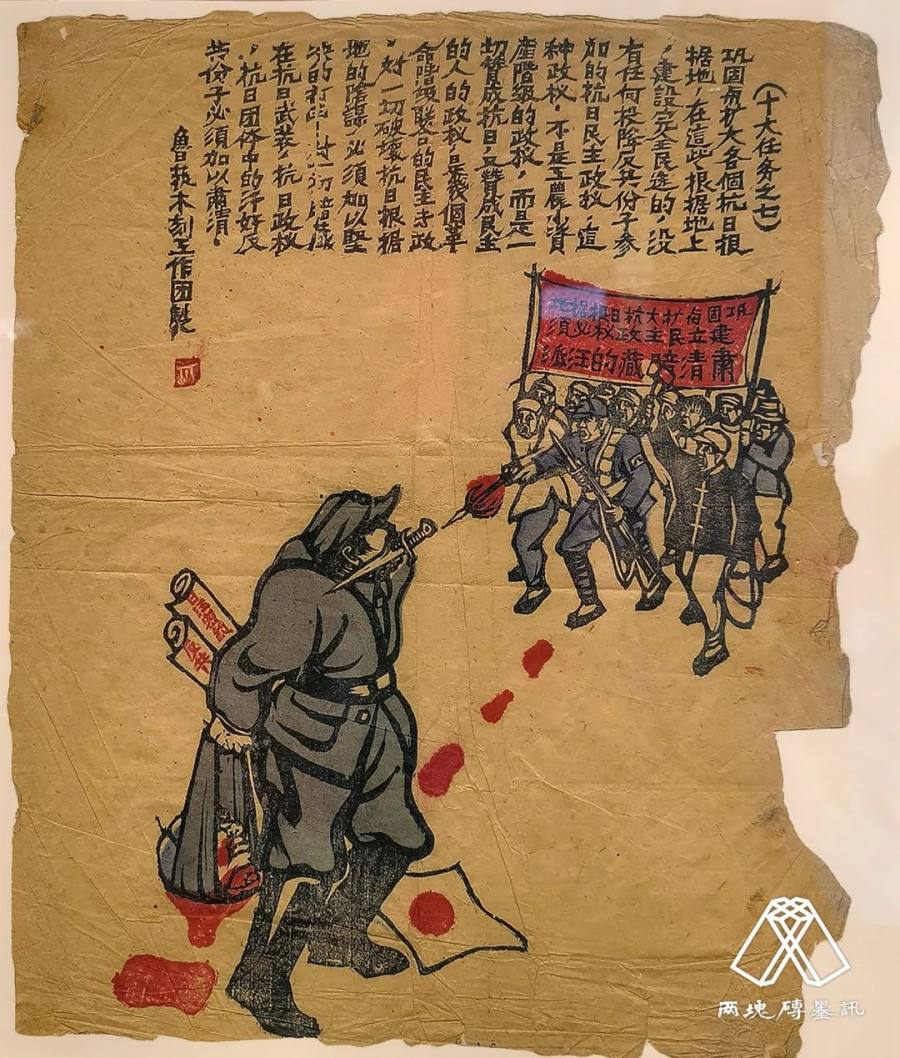 (十大任务之七)
巩固与扩大各個抗日根
据地，在這些根据地上
，建設完全民选的，没
有任何投降反共份子参
加的抗日民主政权，這
种政权，不是工農小資
産階级的政权，而是一
切贊成抗日又贊成民主
的人的政权，是幾個革
命階级联合的民主专政
，对一切破壞抗日根据
地的陰謀，必须加以堅
决的打击，对一切暗藏
在抗日武装，抗日政权
，抗日团体中的汗奸反
共份子必须加以肃清。
魯藝木刻工作团製
巩固与扩大抗日根据地
建立民主政权必須
肅清暗藏的汪派
反共
两塊磚墨訊